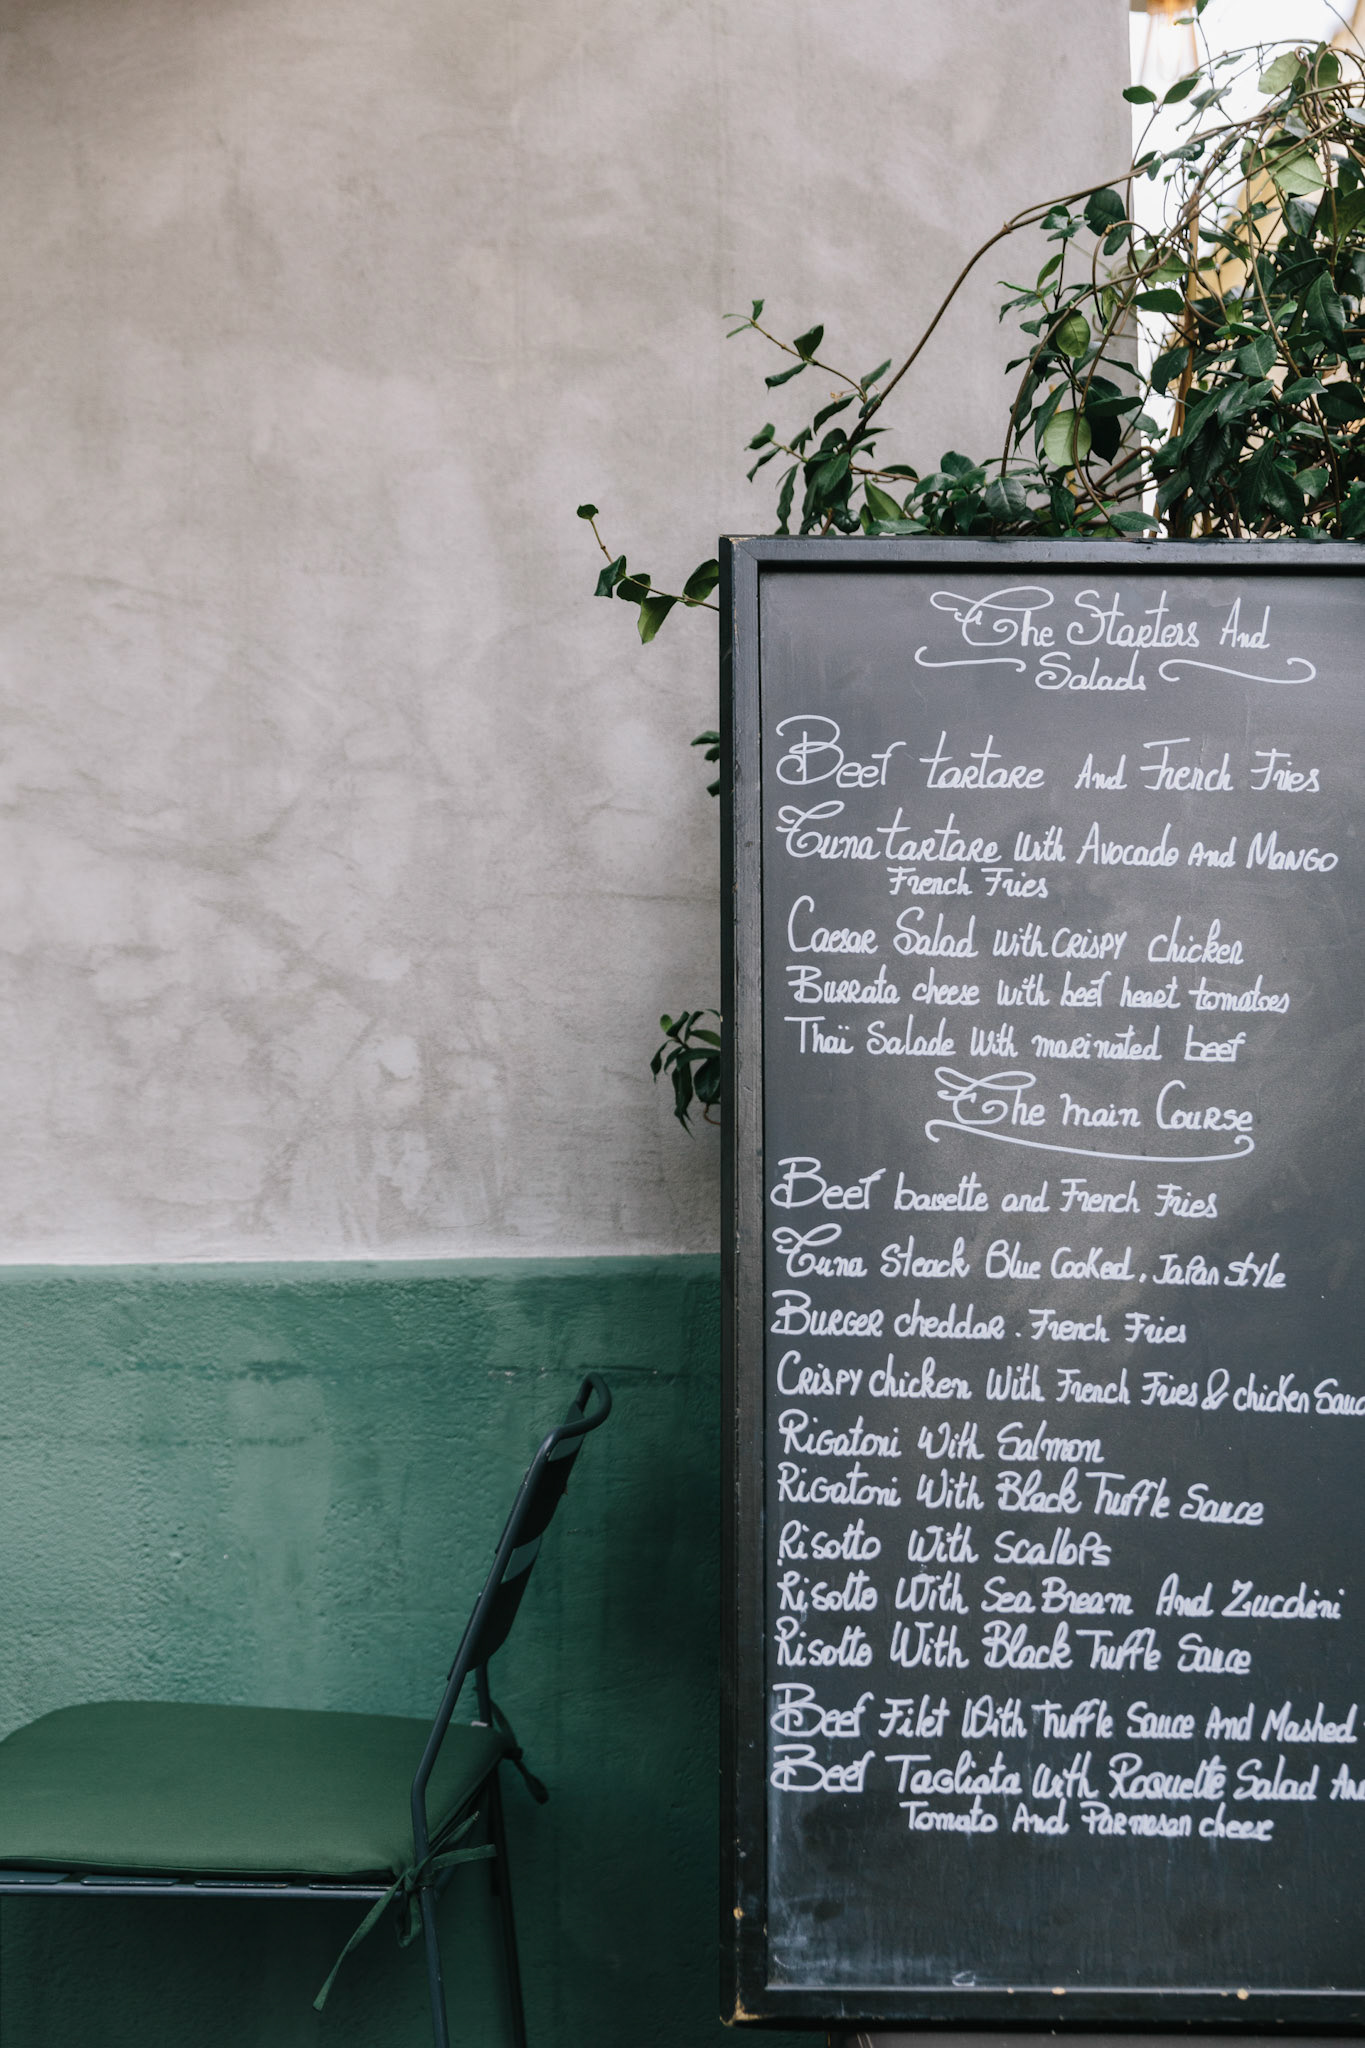 The Starters And
Salads
Beef tartare And French Fries
Tuna tartare With Avocado And MANGO
French Fries
Caesar Salad With CRISPY chicken
Burrata cheese With beef heart tomatoes
Thaï Salade With marinated beef
The main Course
Beef bavette and French Fries
Tuna Steack Blue Cooked, Japan Style
Burger cheddar. French Fries
Crispy chicken With French Fries & chicken Sauc
Rigatoni With Salmon
Rigatoni With Black Truffle Sauce
Risotto With Scallops
Risotto With Sea Bream And Zucchini
Risotto With Black Truffle Sauce
Beef Filet With Truffle Sauce And Mashed
Beef Tagliata With Roquette Salad An
Tomato And Parmesan cheese